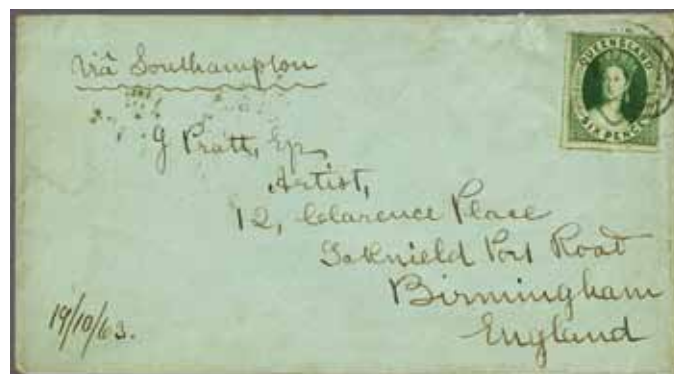 Viâ Southampton
QUEENSLAND
SIX PENCE
G Pratt, Esq.
Artist,
12, Clarence Place
Icknield Port Road
Birmingham
England
19/10/63.